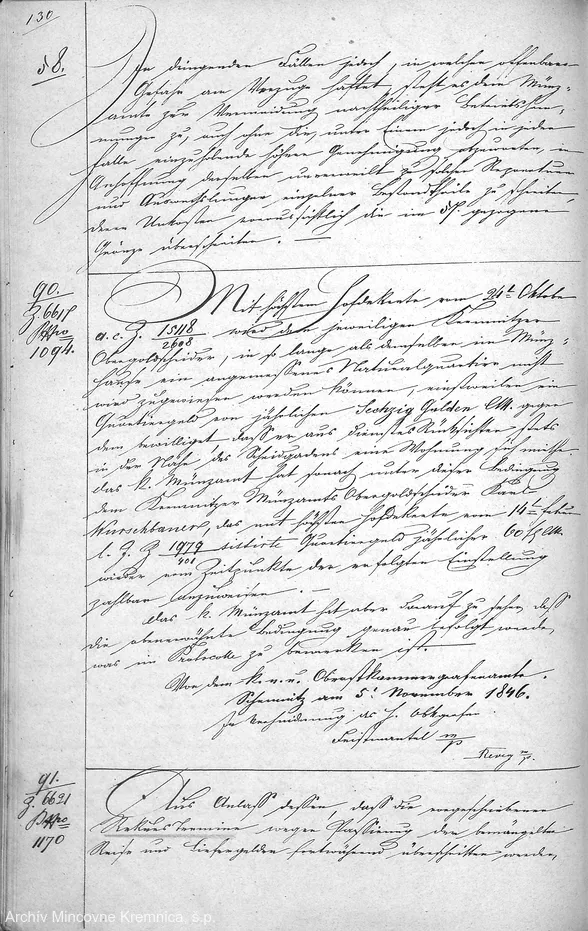 130
58.
In dringenden Fällen jedoch, in welchen offenbare
Gefahr am Verzuge haftet, steht es dem Münz-
amte zur Vermeidung nachtheiliger Betriebs
zu, auch ohne die, unter Einem jedoch in jedem
Falle einzuholende höhere Genehmigung abzuwarten, in
Anhoffnung derselben unverweilt zu solchen Reparaturen
und Auswechslungen einzelner Bestandtheile zu schreiten,
deren Unkosten voraussichtlich die im gezogene
Gränze überschreiten. —
90.
Z. 6617
1094.
Mit hohem Hofdekrete vom 24t Oktober
a. c. Z. 15118/2608 wird dem jeweiligen Kremnitzer
Obergoldscheider, in so lange als demselben im Münz-
hause ein angemessenes Naturalquartier nicht
wird zugewiesen werden können, einstweilen ein
Quartiergeld von jährlichen Sechzig Gulden CM. gegen
dem bewilliget dass er aus Dienstes Rücksichten stets
in der Nähe des Scheidgadens eine Wohnung sich miethe.
das k. Münzamt hat sonach unter dieser Bedingung
dem Kremnitzer Münzamts Obergoldscheider Karl
Wurschbauer, das mit hohem Hofdekrete vom 14t
l. J. Z 1979/401 sistirte Quartiergeld jährlicher 60 f CM.
wieder vom Zeitpunkte der erfolgten Einstellung
zahlbar anzuweisen. —
Das k. Münzamt hat aber darauf zu sehen, daß
die obenerwähnte Bedingung genau befolgt werde,
was im Protocolle zu bemerken ist. —
Von dem k. n. u. Oberstkammergrafenamte.
Schemnitz am 5t November 1846.
In Verhinderung des H.
Feistmantel m/p
m/p.
91.
Z. 6621
1170
Aus Anlaß dessen, daß die vorgeschriebenen
Rekurs Termine wegen Passirung der bemängelten
Reise und Liefergelder fortwährend überschritten werden,
Archív Mincovne Kremnica, š.p.